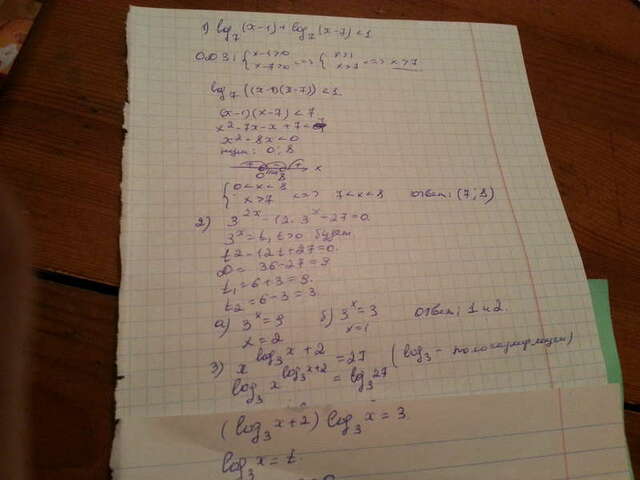 1) log₇(x-1) + log₇(x-7) < 1
ОДЗ: { x-1>0 x-7>0 <=> { x>1 x>7 <=> x>7
log₇((x-1)(x-7)) < 1
(x-1)(x-7) < 7
x²-7x-x+7<7
x²-8x<0
нули: 0; 8
+ - + x
0 8
{ 0<x<8 x>7 <=> 7<x<8 ответ: (7; 8)
2) 3^{2x} - 12·3^x - 27=0
3^x=t, t>0
t²-12t+27=0.
D= 36-27=9
t₁=6+3=9.
t₂=6-3=3.
а) 3^x=9 б) 3^x=3 ответ: 1 и 2.
x=2 x=1
3) x^{log₃x+2} = 27 (log₃ - пологарифмируем)
log₃ x^{log₃x+2} = log₃27
(log₃x+2) log₃x = 3.
log₃x = t.